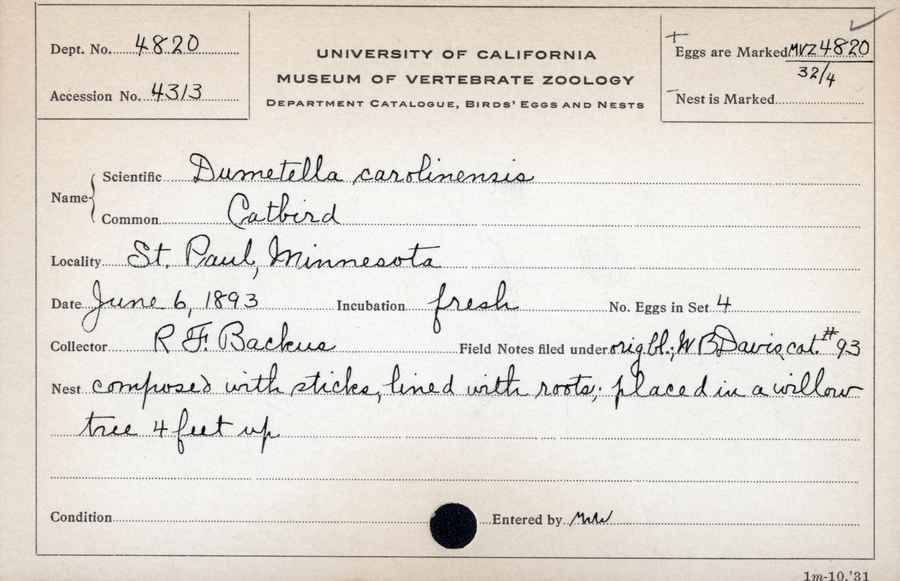 Dept. No. 4820
Accession No. 4313
UNIVERSITY OF CALIFORNIA
MUSEUM OF VERTEBRATE ZOOLOGY
DEPARTMENT CATALOGUE, BIRDS' EGGS AND NESTS
+ Eggs are Marked MVZ 4820
32/4
- Nest is Marked
Name { Scientific Dumetella carolinensis
Common Catbird
Locality St. Paul, Minnesota
Date June 6, 1893 Incubation fresh No. Eggs in Set 4
Collector R F. Backus Field Notes filed under orig bl.; W B Davis, cat. #93
Nest composed with sticks, lined with roots; placed in a willow
tree 4 feet up
Condition Entered by
1m-10,'31